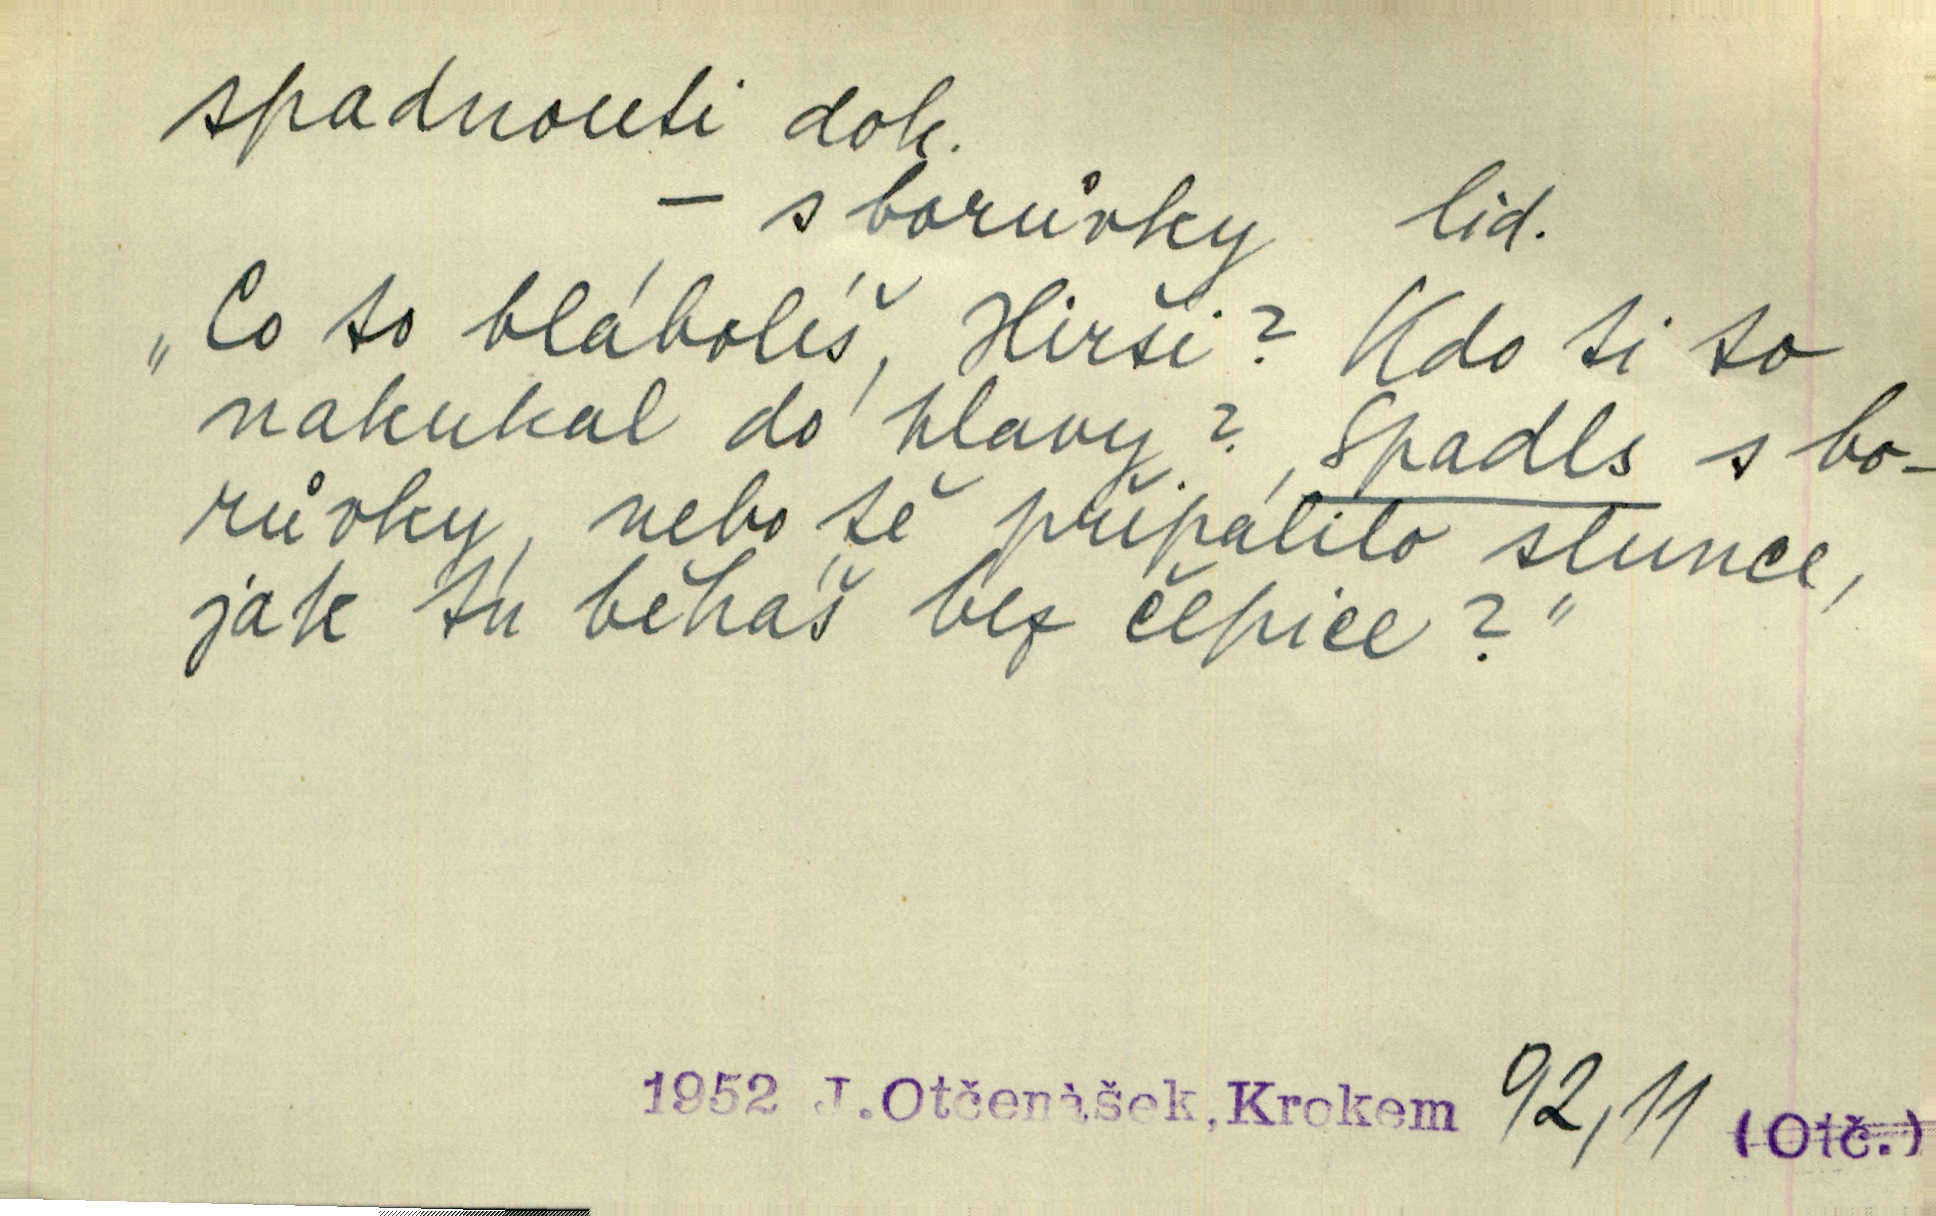 spadnouti dok.
– s borůvky lid.
„Co to blábolíš, Hirši? Kdo ti to
nakukal do hlavy? Spadls s bo-
růvky, nebo tě připálilo slunce,
jak tu běháš bez čepice?"
1952 J.Otčenášek,Krokem 92,11 (Otč.)